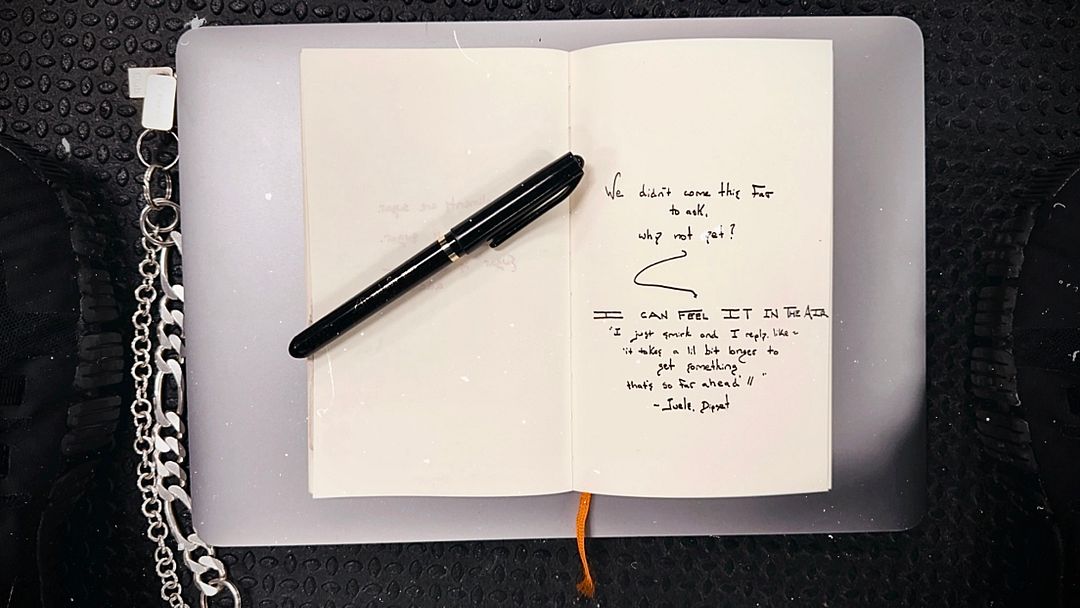 We didn't come this Far
to ask,
why not yet?
I CAN FEEL IT IN THE AIR
"I just smirk and I reply, like ~
'it takes a lil bit longer to
get something
that's so far ahead' //"
~ Juelz, Dipset